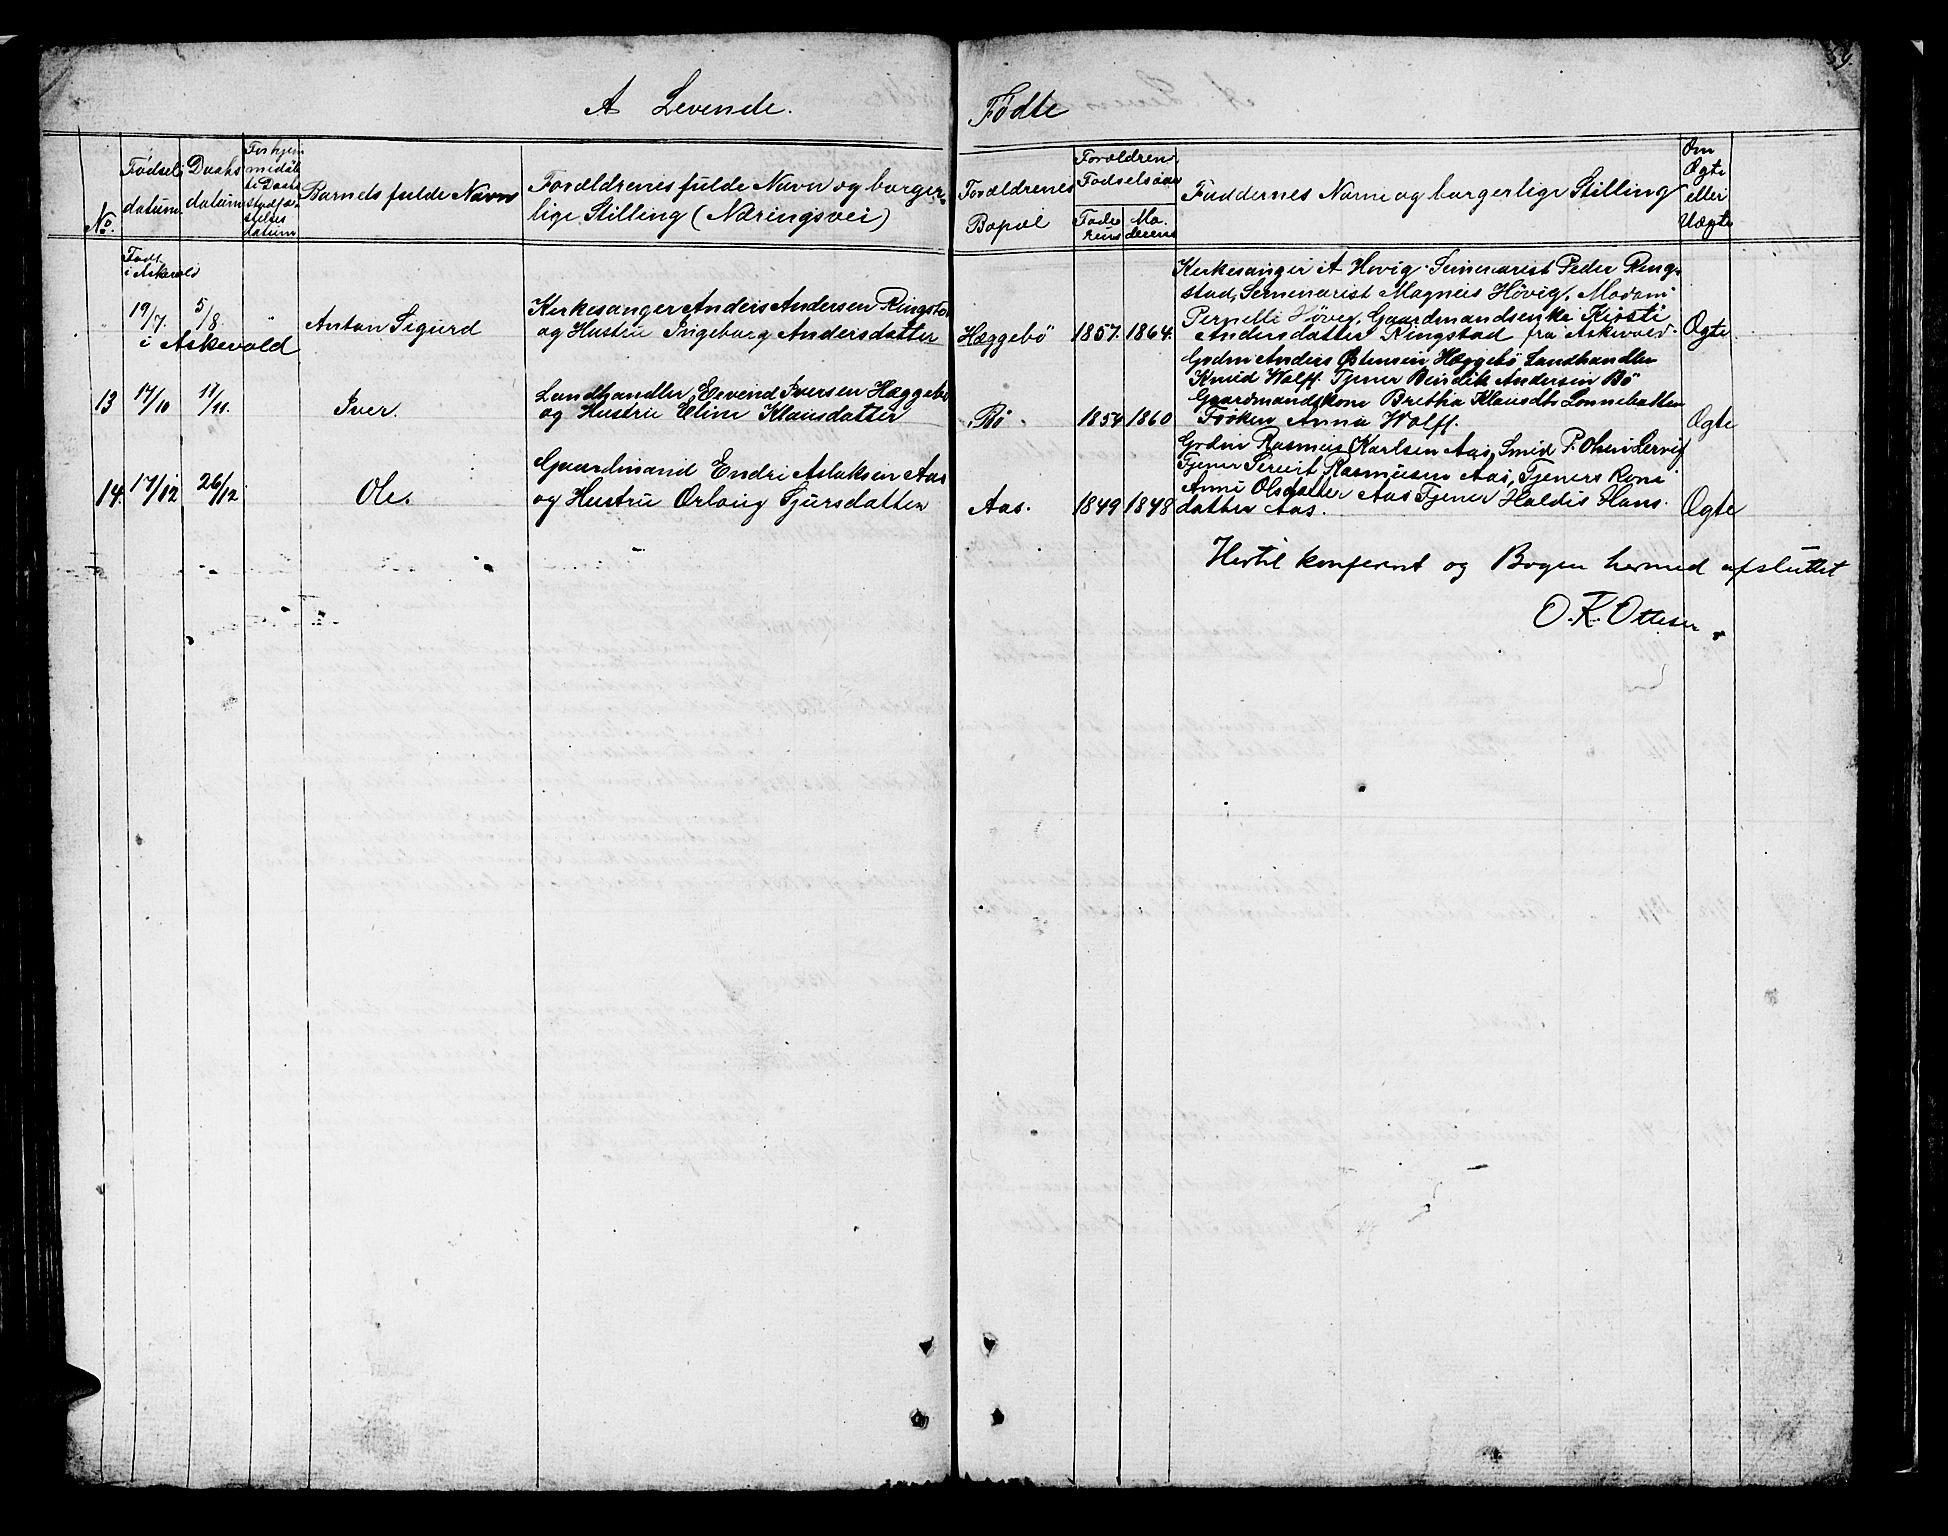 59.
A Levende.
Fødte
No.
Fødsels datum.
Daabs datum
Barnets fulde Navn
Forældrenes fulde Navn og borger-
lige Stilling (Næringsvei)
Forældrenes
Bopæl
Forældrenes
Fødselsaar
Faderens
Moderens
Faddernes Navne og borgerlige Stilling
Om
Ægte
eller
Uægte
Født
i Askevold
" 19/7. 5/8. " Anton Sigurd
i Askevold
Kirkesanger Anders Andersen Ringstad
og Hustru Ingeborg Andersdatter
Hæggebö 1857. 1864.
Kirkesanger A Høvig Seminarist Peder Ring-
stad, Seminarist Magnus Hövig, Madam
Pernille Hövig, Gaardmandsenke Kirsti
Andersdatter Ringstad fra Askevold.
Ægte
13 17/10 17/11. Iver.
Landhandler Eevend Iversen Hæggebö
og Hustru Eline Klausdatter
Bö 1854 1860
Grdm Anders Østensen Hæggebö Landhandler
Knud Wolff. Tjener Bendik Andersen Bö
Gaardmandskone Brethe Klausdtr Lonnebotten
Frøken Anna Wolff.
Ægte
14. 17/12 26/12 Ole.
Gaardmand Endre Aslaksen Aas
og Hustru Orlaug Sjursdatter
Aas. 1849 1848
Grdm Rasmus Karlsen Aas, Smid P. Olsen Lervig
Tjener Sivert Rasmusen Aas, Tjeners Kone
Anne Olsdatter Aas Tjener Haldis Hans-
datter Aas.
Ægte
Hertil konferert og Bogen hermed afsluttet
O. K. Ottesen.